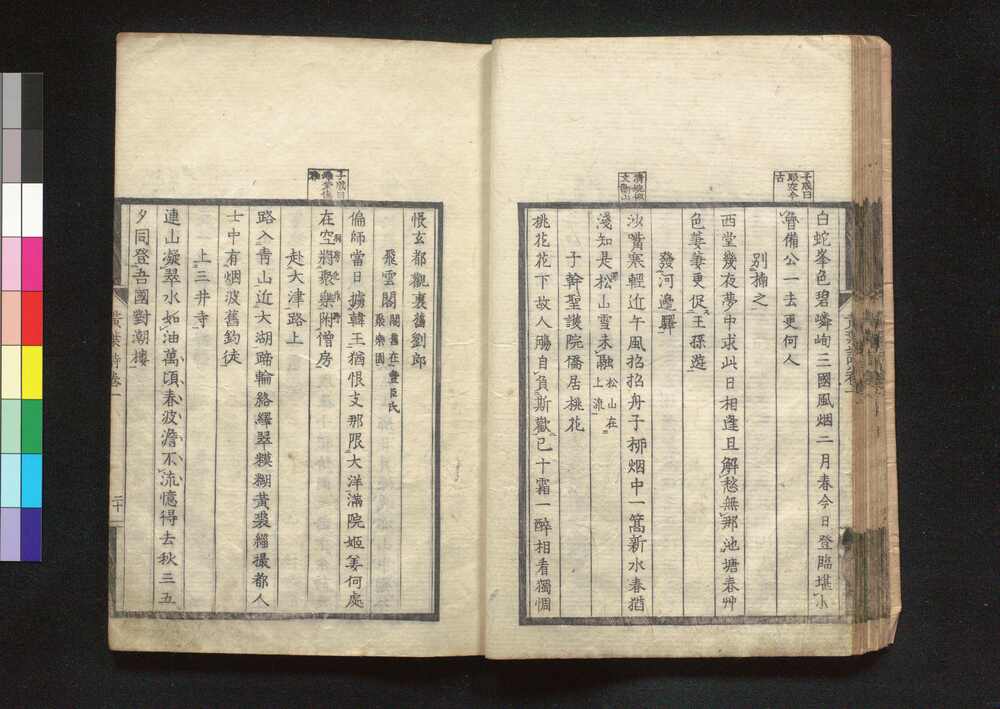 白蛇峯色碧嶙峋三國風烟二月春今日登臨堪
魯備公一去更何人
別楠之
西堂幾夜夢中求此日相逢且解愁無那池塘春艸
色萋萋更促王孫遊
發河邊驛
沙觜寒輕近午風招招舟子柳烟中一篙新水春猶
淺知是松山雪未融
松山在
上流
于幹聖護院僑居桃花
桃花花下故人觴自負斯歡已十霜一醉相看獨惆
悵玄都觀裏舊劉郎
飛雲閣
閣舊在豐臣氏
聚樂園
偏師當日擄韓王猶恨支那限大洋滿院姬姜何處
在空將聚樂附僧房
赴大津路上
路入青山近大湖蹄輪絡繹翠糢糊黃裘繦撮都人
士中有烟波舊釣徒
上三井寺
連山凝翠水如油萬頃春波澹不流憶得去秋三五
夕同登吾國對潮樓
黃葉詩卷一
二十